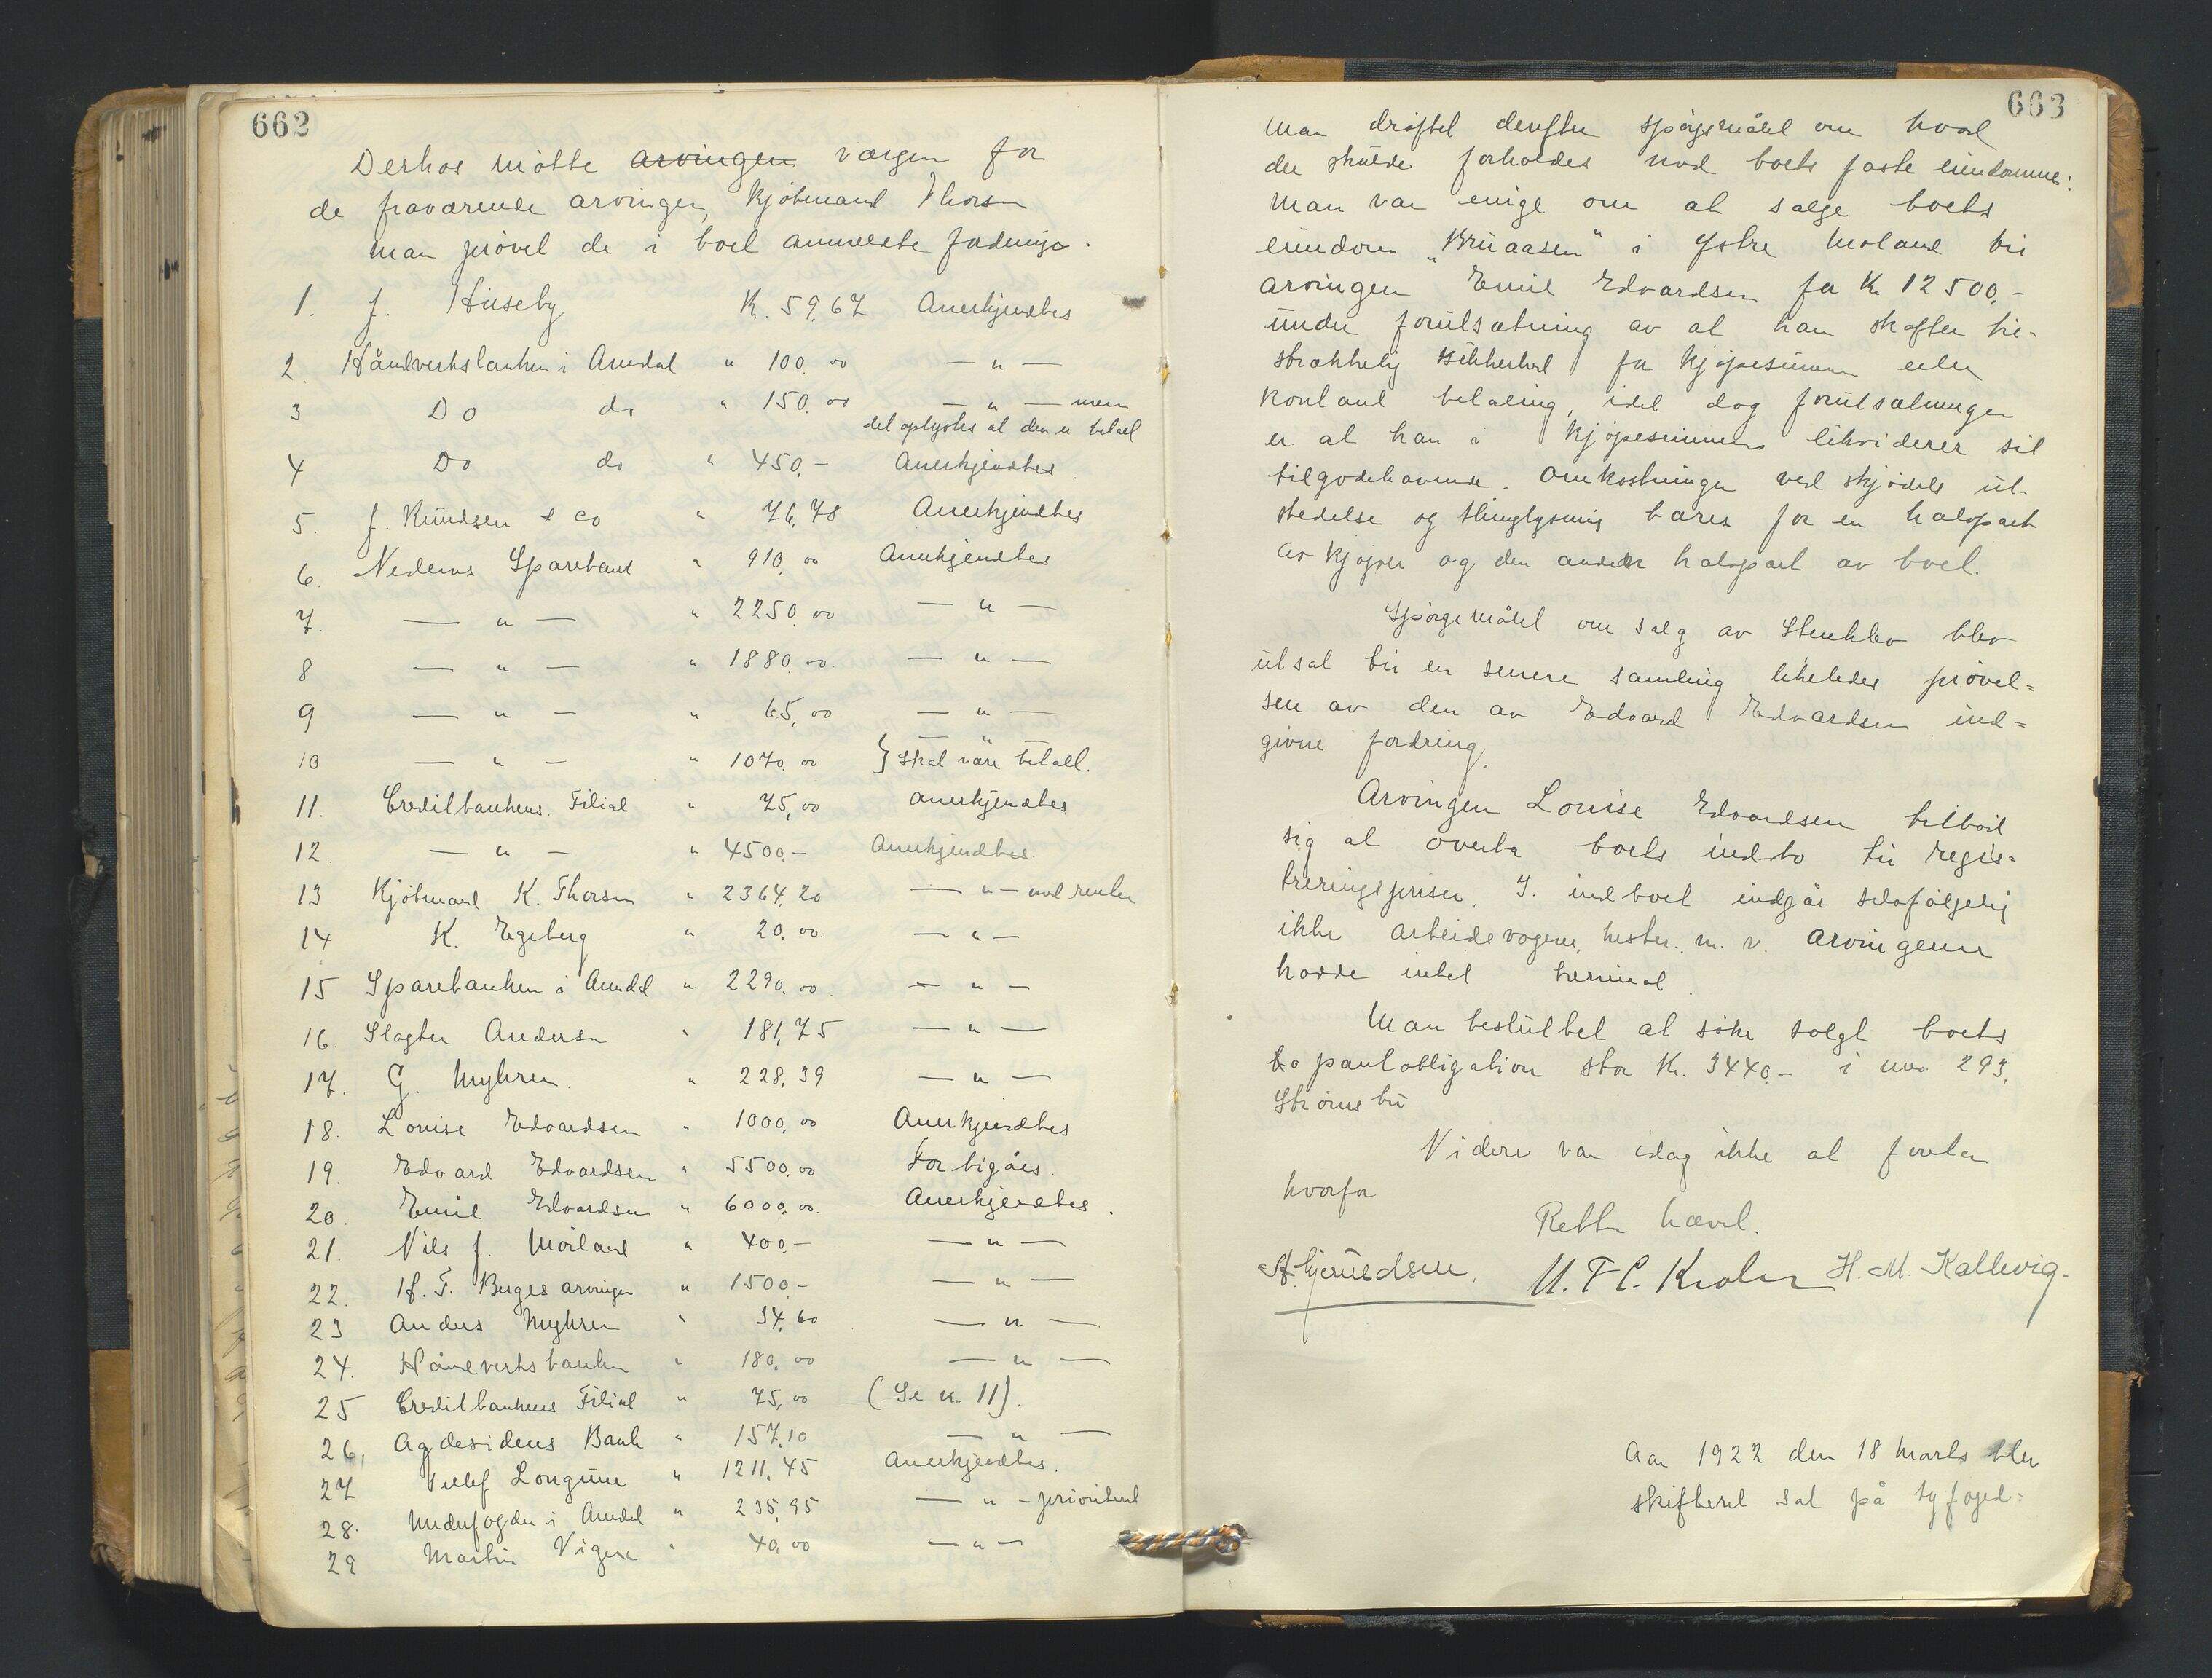 662
Derhos møtte arvingen værgen for
de fraværende arvinger, kjøbmand Thorsen
Man prøvet de i boet anmeldte fordringer.
1. J. Huseby K. 59,67 Anerkjendtes
2. Håndverksbanken i Arendal " 100.00 — " —
3 Do do " 150.00 — " — men
det oplystes at den er betalt
4 Do do " 450,- Anerkjendtes
5. J. Knudsen & Co " 76,78 Anerkjendtes
6. Nedenes Sparebank " 910,00 Anerkjendtes
7. — " — " 2250,00 — " —
8 — " — " 1880.00. — " —
9 — " — " 65,00 — " —
10 — " — " 1070.00 } skal være betalt.
11. Creditbankens Filial " 75,00 Anerkjendtes
12. — " — " 4500,- Anerkjendtes.
13 Kjøbmand K. Thorsen " 2364,20 — " — med renter
14 K. Egeberg " 20.00. — " —
15 Sparebanken i Arendal " 2290,00. — " —
16. Slagter Andersen " 181,75 — " —
17. G. Myhren. " 228,39 — " —
18. Louise Edvardsen " 1000,00 Anerkjendtes
19. Edvard Edvardsen " 5500,00 Forbigåes.
20. Emil Edvardsen " 6000,00. Anerkjendtes.
21. Nils J. Møiland " 400,- — " —
22. H. T. Buges arvinger " 1500,- — " —
23 Anders Myhren " 34,60 — " —
24. Håndverksbanken " 180,00 — " —
25 Creditbankens Filial " 75,00 (Se n. 11).
26, Agdesidens Bank " 157,10 — " —
27 Tellef Longum " 1211,45 Anerkjendtes.
28. Underfogden i Arendal " 235,95 — " — prioritert
29 Martin Vigen " 40,00 — " —
663
Man drøftet derefter spørgsmålet om hvad
der skulde forholdes med boets faste eiendomme:
Man var enige om at sælge boets
eiendom „Bruaasen" i Østre Moland til
arvingen Emil Edvardsen for Kr 12500,-
under forutsætning av at han skaffer til-
strækkelig sikkerhet for kjøpesummen eller
kontant betaling, idet dog forutsætningen
er at han i kjøpesummen likviderer sit
tilgodehavende. Omkostninger ved skjødets ut-
stedelse og thinglysning bæres for en halvpart
av kjøper og den anden halvpart av boet.
Spørgsmålet om salg av Stenklev blev
utsat til en senere samling likeledes prøvel-
sen av den av Edvard Edvardsen ind-
givne fordring.
Arvingen Louise Edvardsen tilbød
sig at overta boets indbo til regis-
treringspriser. I indboet indgår selvfølgelig
ikke arbeidsvogner, hester m. v. Arvingerne
hadde intet at erindre.
Man besluttet at søke solgt boets
pantobligation stor Kr. 3440,- i mno 293,
Strømsbu
Videre var idag ikke at foreta
hvorfor
Retten hævet.
U. F. C. Krohn H. M. Kallevig.
Aar 1922 den 18 Marts blev
skifteret sat på byfoged-